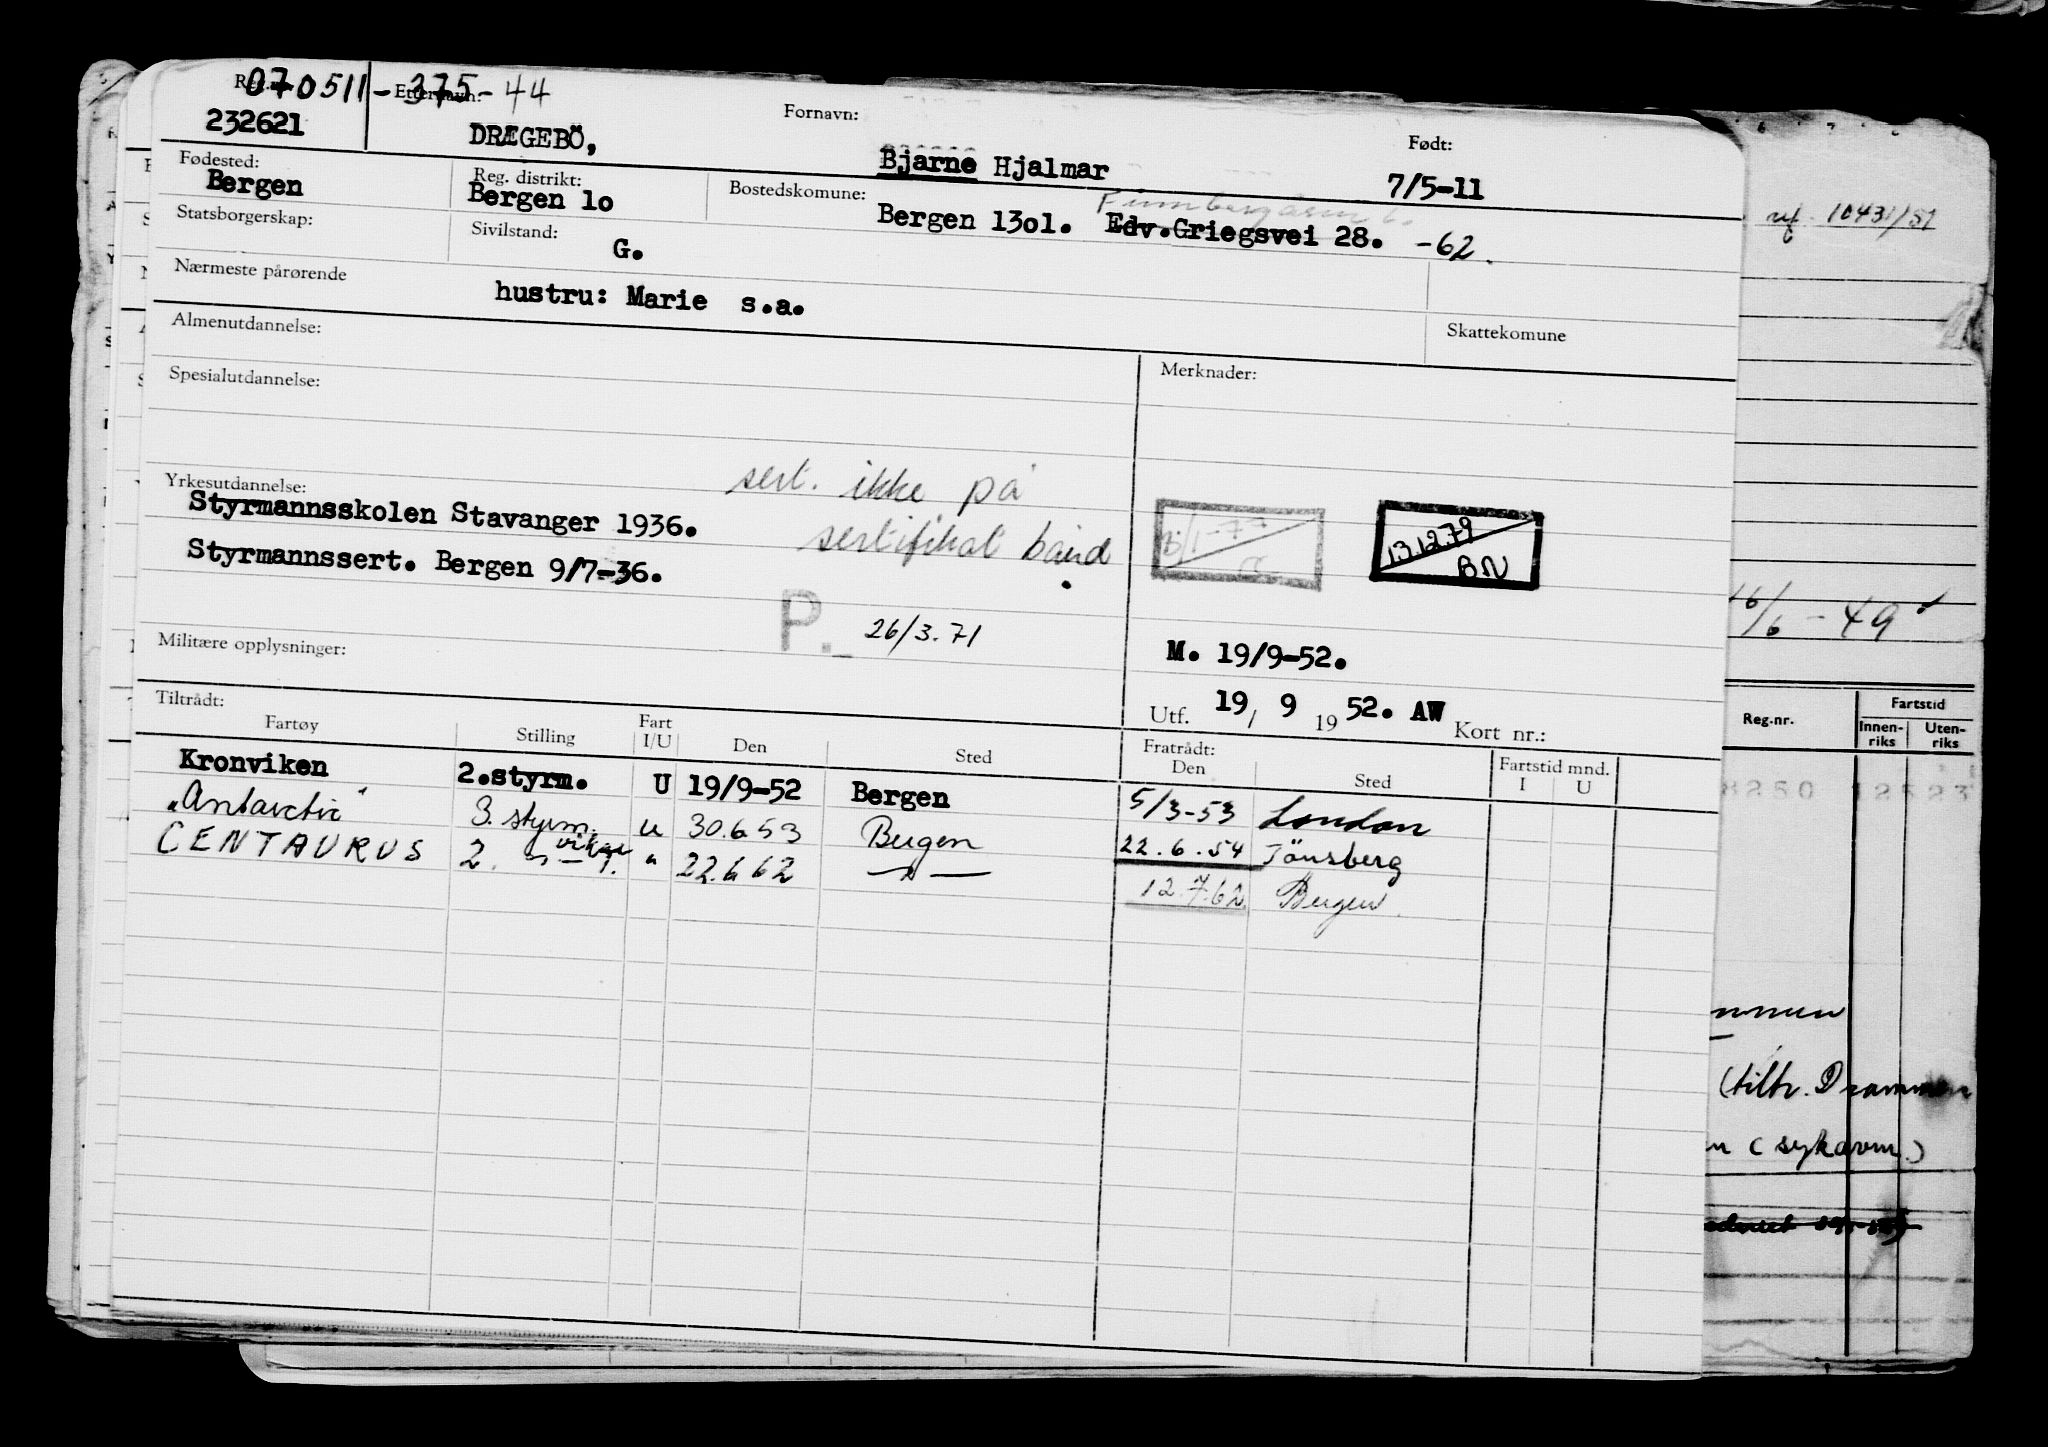 070511-375-44
Reg. Etternavn: Fornavn: Født:
232621 DRÆGEBÖ, Bjarne Hjalmar 7/5-11
Fødested: Reg. distrikt: Bostedskomune:
Bergen Bergen lo Bergen 13ol. Edv.Griegsvei 28. -62.
Statsborgerskap: Sivilstand:
G.
Nærmeste pårørende
hustru: Marie s.a.
Almenutdannelse: Skattekomune
Spesialutdannelse: Merknader:
Yrkesutdannelse: sert. ikke på
Styrmannsskolen Stavanger 1936. sertifikat bånd
Styrmannssert. Bergen 9/7-36.
13.12.79
BN
P. 26/3.71
Militære opplysninger:
M. 19/9-52.
Utf. 19/ 9 19 52. AW Kort nr.:
Tiltrådt: Fratrådt: Fartstid mnd.
Fartøy Stilling Fart I/U Den Sted Den Sted I U
Kronviken 2.styrm. U 19/9-52 Bergen 5/3-53 London
"Antarctic" 3. styrm. u 30.6 53 Bergen 22.6.54 Tönsberg
CENTAURUS 2. — " — vikar " 22.6 62 — " — 12.7.62 Bergen.
10431/51
16/6 - 49
Reg.nr. Fartstid
Innen-riks Uten-riks
8250 12523
(tiltr. Drammen
(sykavm.)